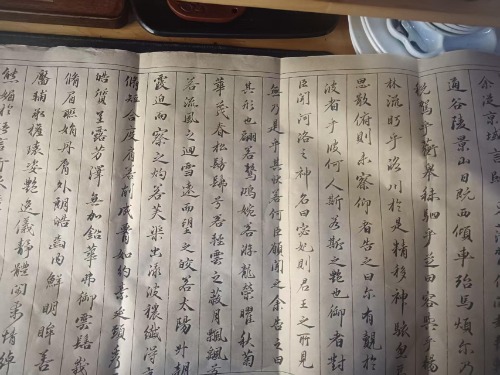 余從京域
通谷陵景山日既西傾車殆馬煩尔乃
税駕乎蘅皋秣駟乎芝田容與乎楊
林流眄乎洛川於是精移神駭忽焉
思散俯則未察仰者告之曰尔有覿於
彼者乎彼何人斯若斯之艷也御者對
臣聞河洛之神名曰宓妃則君王之所見
無乃是乎其狀若何臣願聞之余告之曰
其形也翩若驚鴻婉若游龍榮曜秋菊
華茂春松髣髴兮若輕雲之蔽月飄飄兮
若流風之迴雪遠而望之皎若太陽升朝
霞迫而察之灼若芙蕖出淥波穠纖得
脩短合度肩若削成腰如約素延頸秀
皓質呈露芳澤無加鉛華弗御雲髻峩
脩眉聯娟丹脣外朗皓齒内鮮明眸善
靨輔承權瓌姿艷逸儀靜體閑柔情綽
態媚於語言